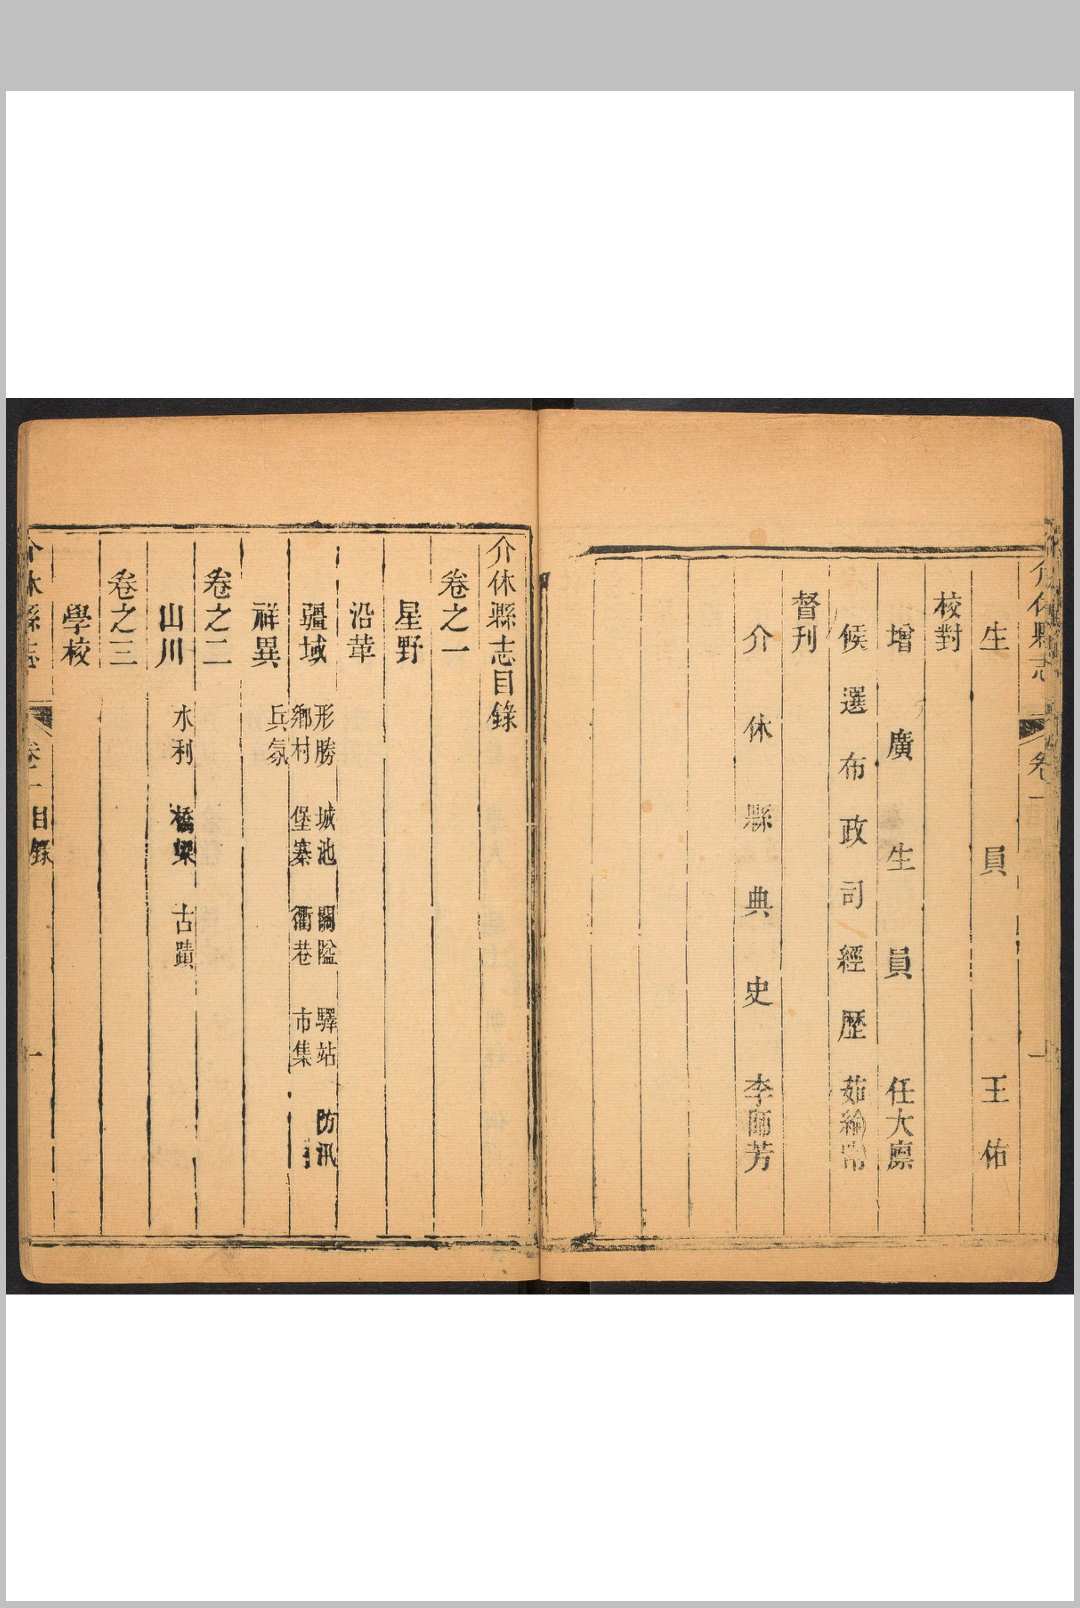 介休縣志
卷一
一
生員 王佑
校對
增廣生員 任大廩
候選布政司經歷 茹綸常
督刊
介休縣典史 李師芳
介休縣志目錄
卷之一
星野
沿革
疆域 形勝 城池 關隘 驛站 防汛
鄉村 堡寨 衢巷 市集
祥異 兵氛
卷之二
山川 水利 橋梁 古蹟
卷之三
學校
介休縣志
目錄
一